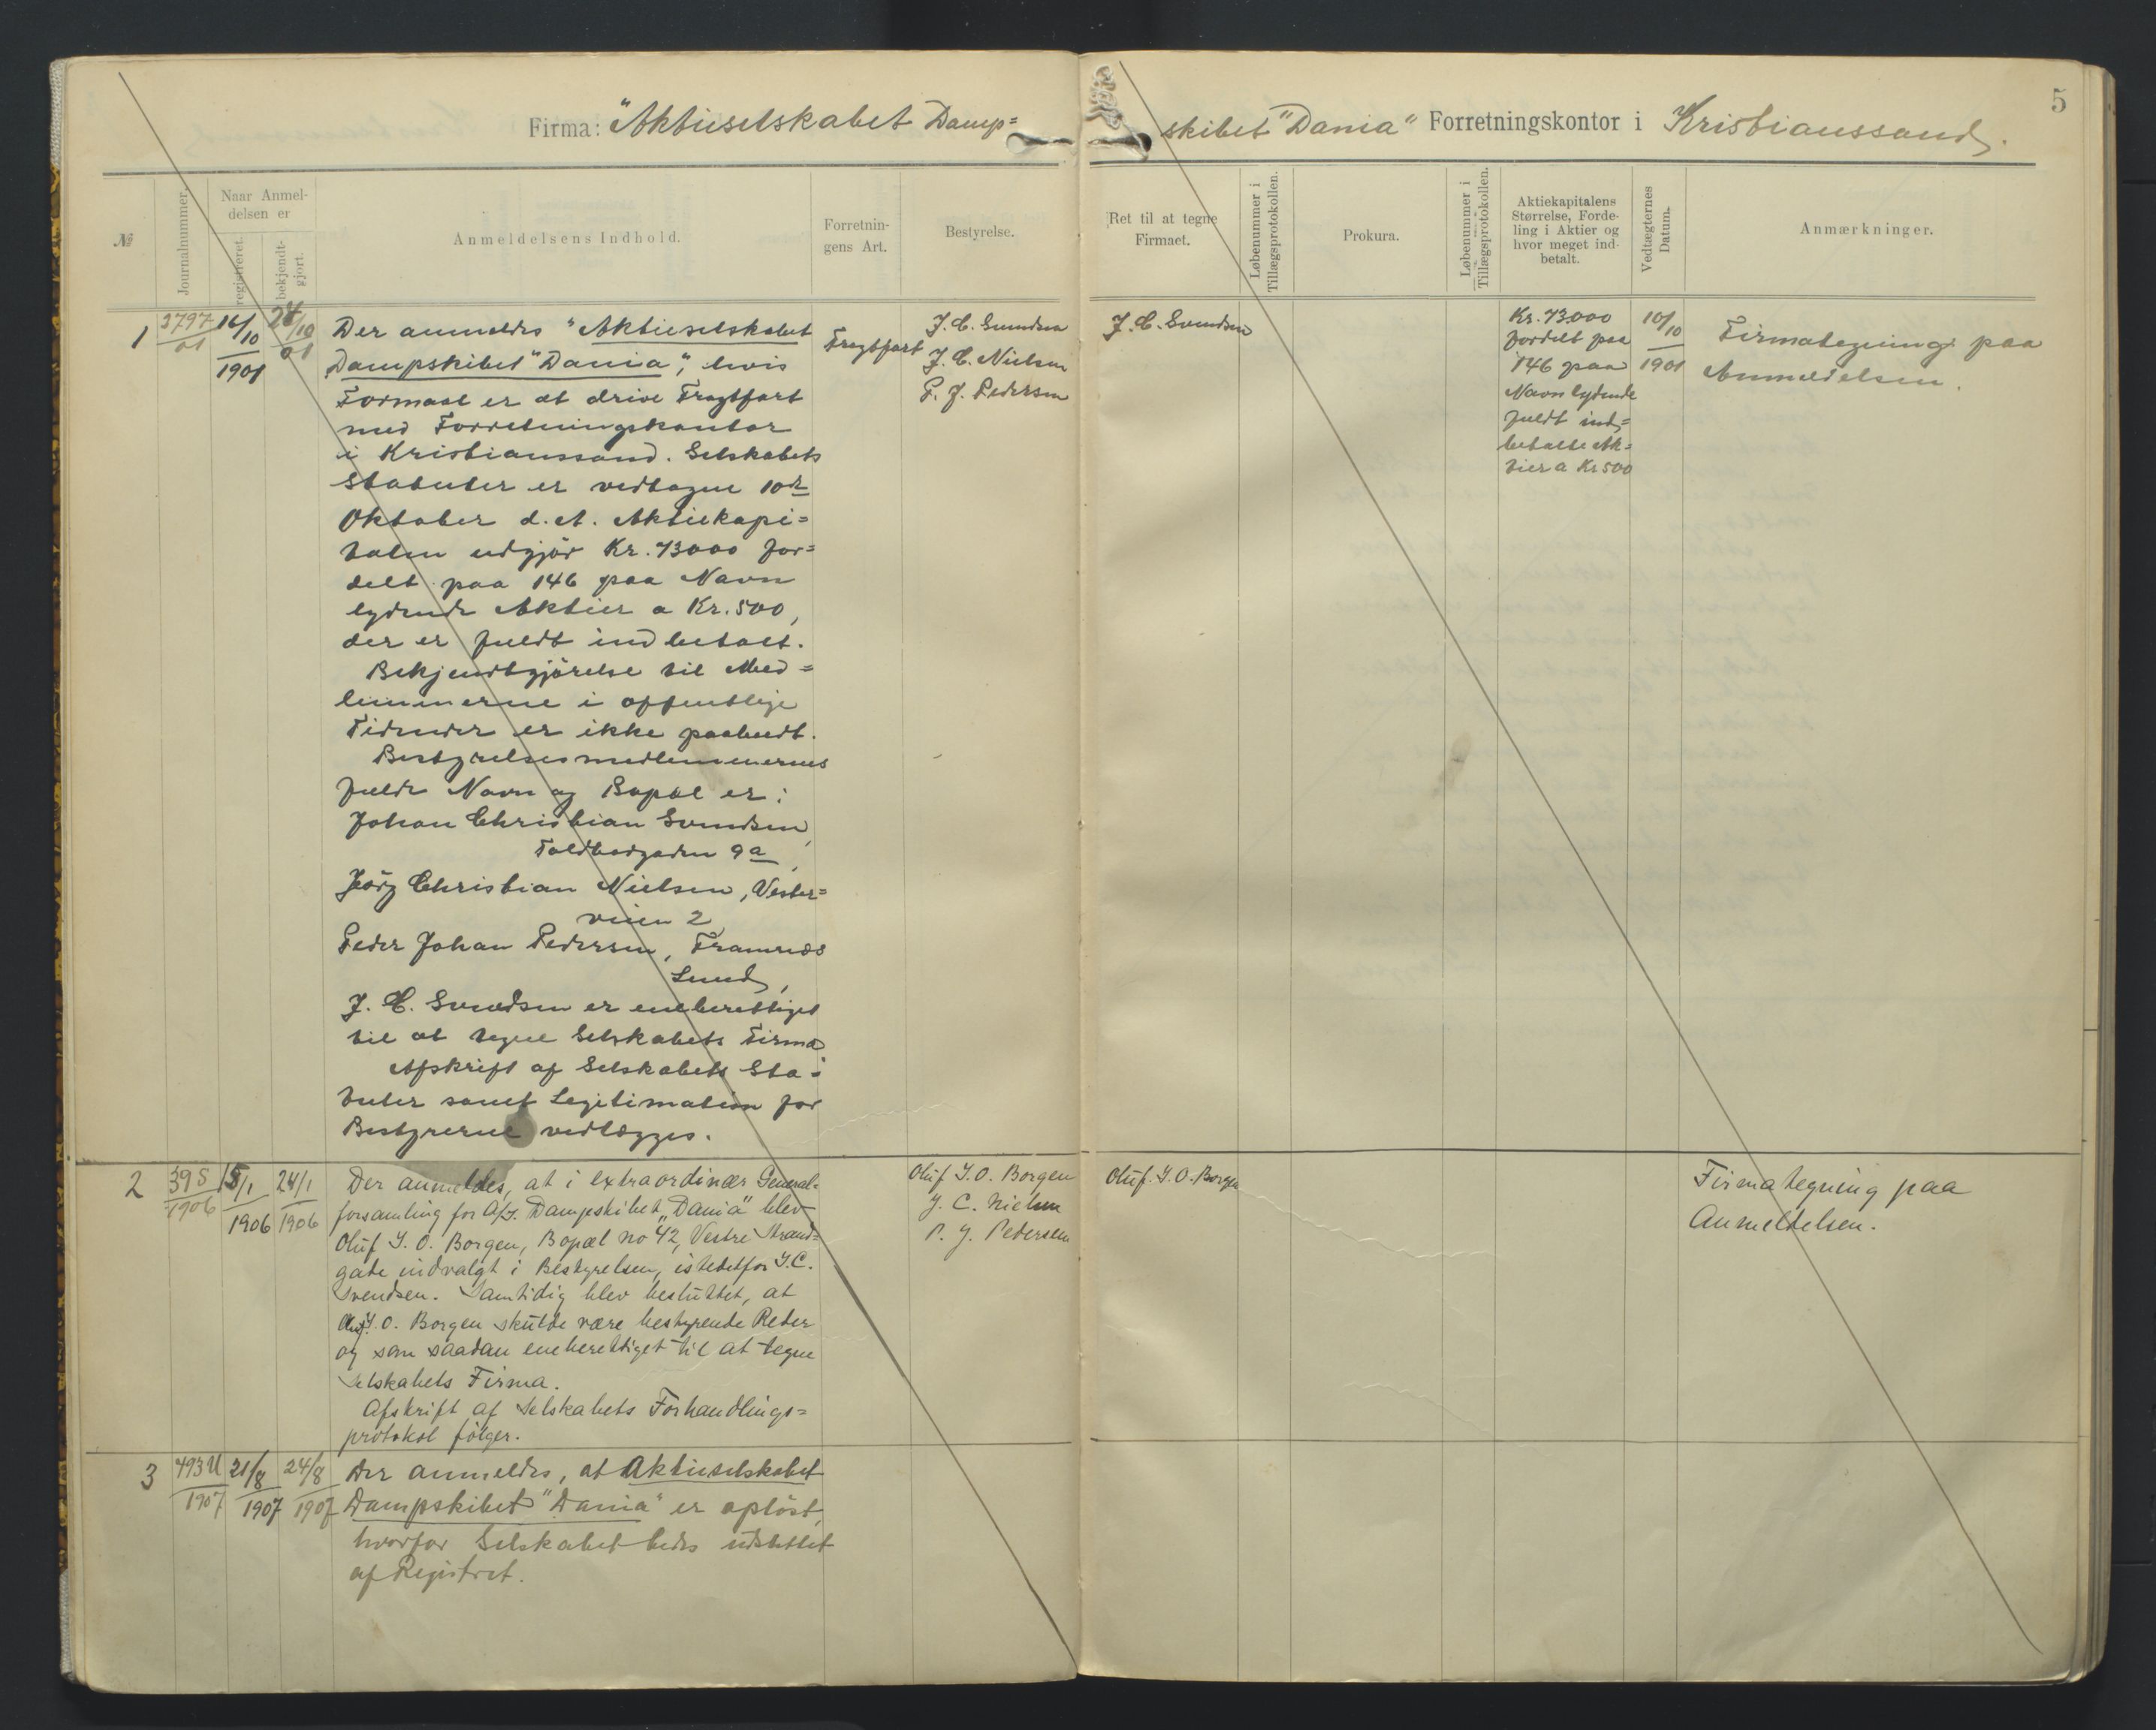 5
Firma: "Aktieselskabet Damp=
skibet "Dania" Forretningskontor i Kristianssand.
№
Journalnummer.
Naar Anmel-
delsen er
registreret.
bekjendt-
gjort.
Anmeldelsens Indhold.
Forretnin-
gens Art.
Bestyrelse.
Ret til at tegne
Firmaet.
Løbenummer i
Tillægsprotokollen.
Prokura.
Løbenummer i
Tillægsprotokollen.
Aktiekapitalens
Størrelse, Forde-
ling i Aktier og
hvor meget ind-
betalt.
Vedtægternes
Datum.
Anmærkninger.
1
3797
01
16/10
1901
/10
01
Der anmeldes "Aktieselskabet
Dampskibet "Dania", hvis
Formaal er at drive Fragtfart
med Forretningskontor
i Kristianssand. Selskabets
Statuter er vedtagne 10de
Oktober d.A. Aktiekapi=
talen udgjør Kr. 73000 for=
delt paa 146 paa Navn
lydende Aktier a Kr. 500,
der er fuldt indbetalt.
Bekjendtgjørelse til Med=
lemmerne i offentlige
Tidender er ikke paabudt.
Bestyrelsesmedlemmernes
fulde Navn og Bopæl er:
Johan Christian Svendsen,
Toldbodgaden 9a,
Jörg Christian Nielsen, Vester=
veien 2
Peder Johan Pedersen, Framnæs
Lund,
J. C. Svendsen er eneberettiget
til at tegne Selskabets Firma
Afskrift af Selskabets Sta=
tuter samt Legitimation for
Bestyrerne vedlægges.
Fragtfart
J. C. Svendsen
J. C. Nielsen
P. J. Pedersen
J. C. Svendsen
Kr. 73000
fordelt paa
146 paa
Navn lydende
fuldt ind=
betalte Ak=
tier a Kr 500
10/10
1901
Firmategning paa
Anmeldelsen.
2
395
1906
15/1
1906
24/1
1906
Der anmeldes, at i extraordinær General=
forsamling for A/S. Dampskibet "Dania" blev
Oluf J. O. Borgen, Bopæl no 42, Vestre Strand=
gate indvalgt i Bestyrelsen, istedetfor J.C.
Svendsen. Samtidig blev besluttet, at
Oluf J. O. Borgen skulde være bestyrende Reder
og som saadan eneberettiget til at tegne
Selskabets Firma.
Afskrift af Selskabets Forhandlings=
protokol følger.
Oluf J. O. Borgen
J. C. Nielsen
P. J. Pedersen
Oluf J. O. Borgen
Firmategning paa
Anmeldelsen.
3
1907
21/8
1907
24/8
1907
Der anmeldes, at Aktieselskabet
Dampskibet "Dania" er opløst,
hvorfor Selskabet bedes udslettet
af Registret.